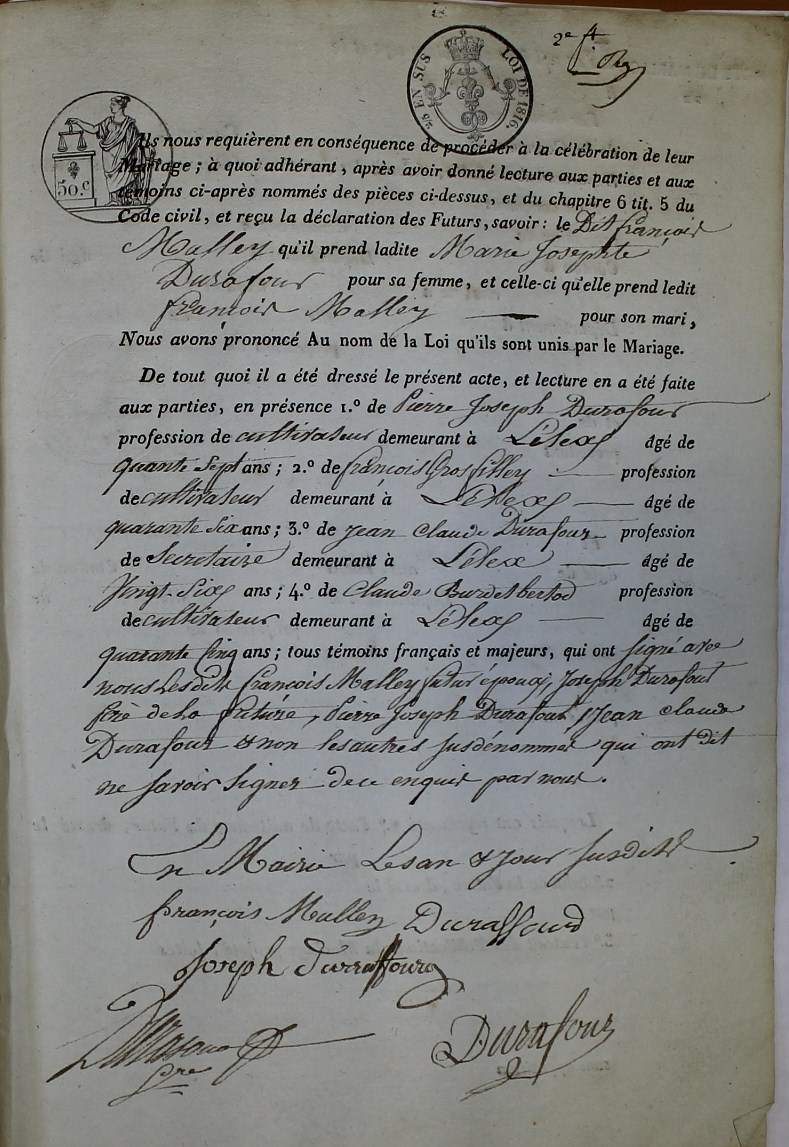 2e ft
2/5 EN SUS LOI DE 1816.
50.c
Ils nous requièrent en conséquence de procéder à la célébration de leur
Mariage; à quoi adhérant, après avoir donné lecture aux parties et aux
témoins ci-après nommés des pièces ci-dessus, et du chapitre 6 tit. 5 du
Code civil, et reçu la déclaration des Futurs, savoir: le Dit françois
Malley qu'il prend ladite Marie Josephte
Durafour pour sa femme, et celle-ci qu'elle prend ledit
françois Malley — pour son mari,
Nous avons prononcé Au nom de la Loi qu'ils sont unis par le Mariage.
De tout quoi il a été dressé le présent acte, et lecture en a été faite
aux parties, en présence 1.º de Pierre Joseph Durafour
profession de cultivateur demeurant à Lélex âgé de
quante Sept ans; 2.º de françois Grosfilley — profession
de cultivateur demeurant à Lélex — âgé de
quarante Six ans; 3.º de jean Claude Durafour profession
de Secretaire demeurant à Lélex — âgé de
Vingt-Six ans; 4.º de Claude Burdetbertod profession
de cultivateur demeurant à Lélex — âgé de
quarante Cinq ans; tous témoins français et majeurs, qui ont signé avec
nous Lesdits françois Malley futur époux, Joseph Durafour
père de La future, Pierre Joseph Durafour, Jean claude
Durafour et non les autres susdénommés qui ont dit
ne savoir signer de ce enquis par nous.
En Mairie Les an & jour susdits
françois Malley Duraffourd
Joseph Durraffourg
Durafour